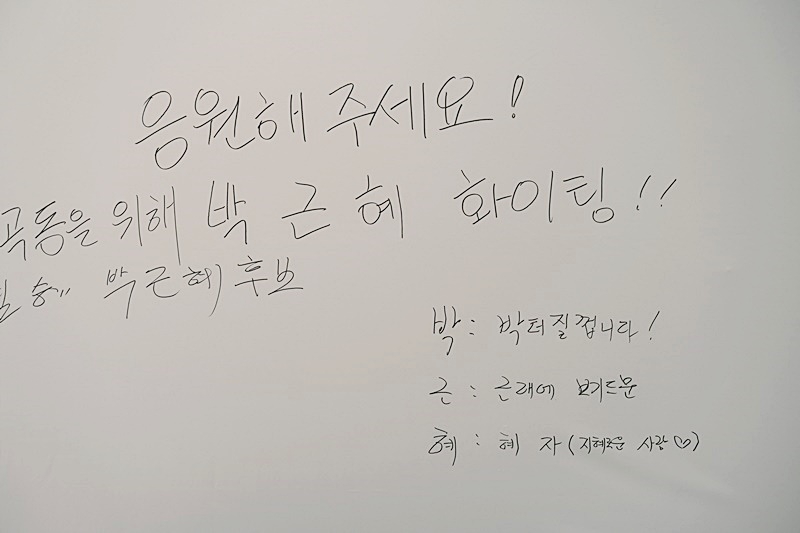 응원해 주세요!
곡동을 위해 박 근 혜 화이팅!!
박근혜 후보
박 : 박터질껍니다!
근 : 근래에 보기드문
혜 : 혜 자 (지혜로운 사람♡)